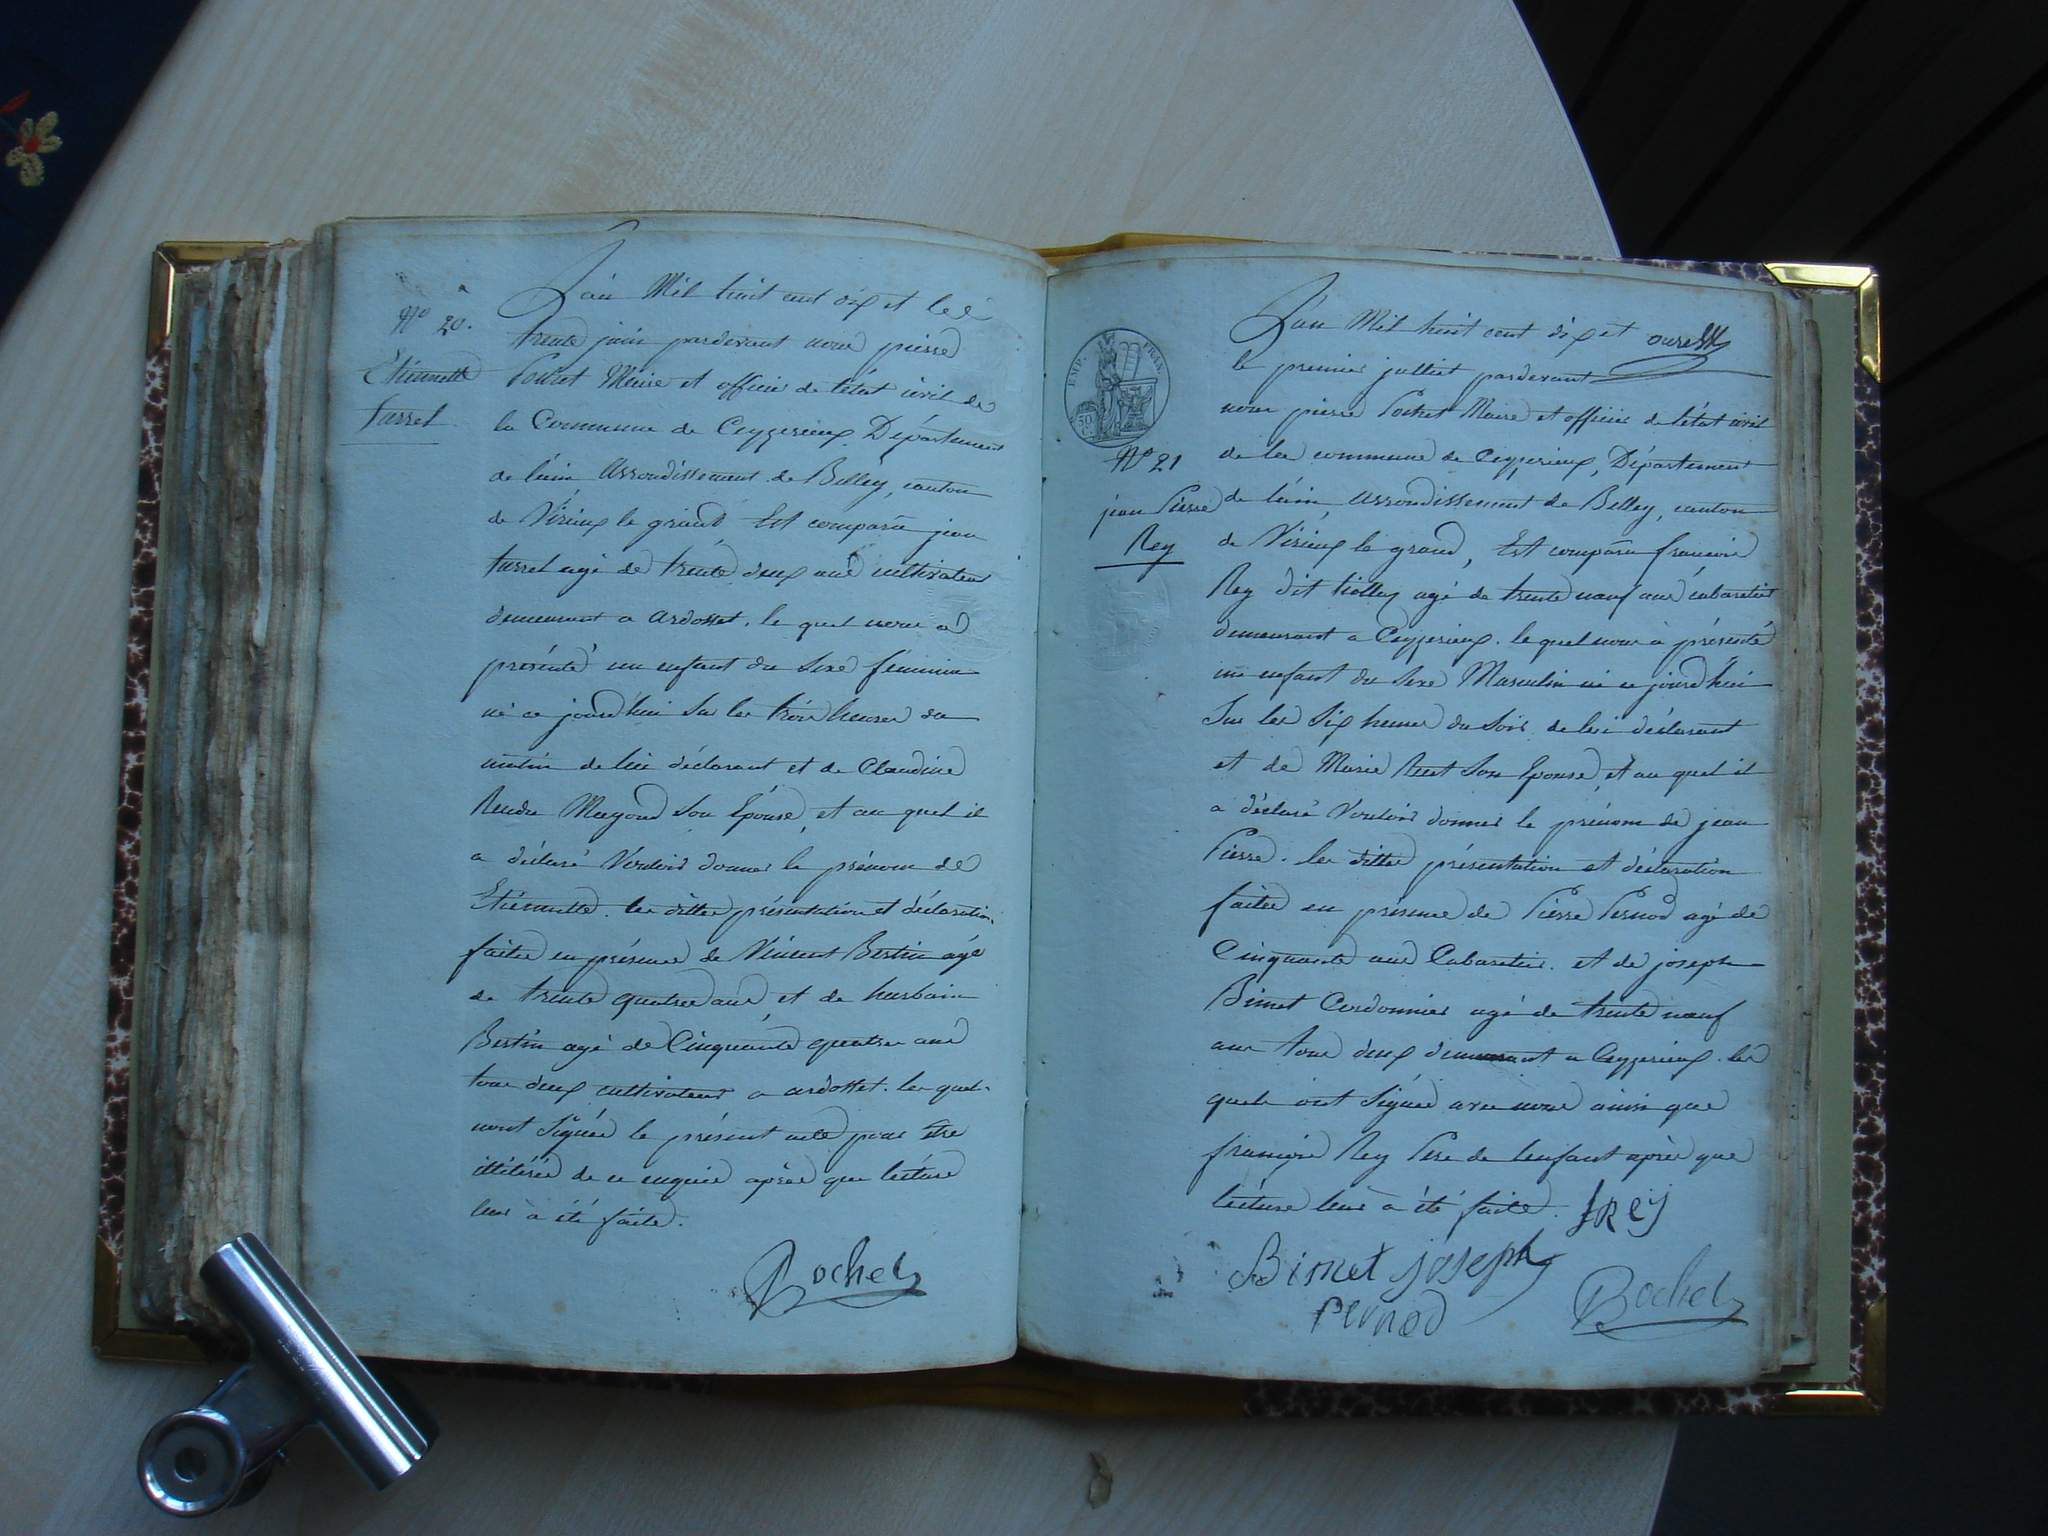 N° 20.
Etiennette
turrel
L'an Mil huit cent dix et le
trente juin pardevant nous pierre
Pochet Maire et officier de l'état civil de
la Commune de Ceyzerieux Département
de l'ain Arrondissement de Belley, canton
de Virieux le grand Est comparu jean
turrel agé de trente deux ans cultivateur
demeurant a ardosset. le quel nous a
présenté un enfant du Sexe féminin
né ce jourd'hui Sur les trois heures du
matin de lui déclarant et de Claudine
Rendu Son Epouse, et au quel il
a déclaré Vouloir donner le prénom de
Etiennette. les dittes présentation et déclaration
faites en présence de Vincent Bertin agé
de trente quatre ans, et de hurbain
Bertin agé de Cinquante quatre ans
tous deux cultivateurs a ardosset. les quels
n'ont Signés le présent acte pour être
illitérés de ce enquis après que lécture
leur à été faite.
Pochet
N° 21
jean Pierre
Rey
L'an Mil huit cent dix et
le premier julliet pardevant
nous pierre Pochet Maire et officier de l'état civil
de la commune de Ceyzerieux, Département
de l'ain, arrondissement de Belley, canton
de Virieux le grand, Est comparu francois
Rey dit agé de trente neuf ans cabaretier
demeurant a Ceyzerieux. le quel nous à présenté
un enfant du Sexe Masculin né ce jourd'hui
Sur les Six heures du Soir de lui déclarant
et de Marie Son Epouse, et au quel il
a déclaré Vouloir donner le prénom de jean
Pierre. les dittes présentation et déclaration
faites en présence de Pierre Pernod agé de
Cinquante ans Cabaretier. et de joseph
Bimet Cordonnier agé de trente neuf
ans tous deux demeurant a Ceyzerieux. les
quels ont Signés avec nous ainsi que
françois Rey Pere de l'enfant après que
lécture leur à été faite.
f Rey
Bimet joseph
pernod
Pochet
EMP. FRAN.
50